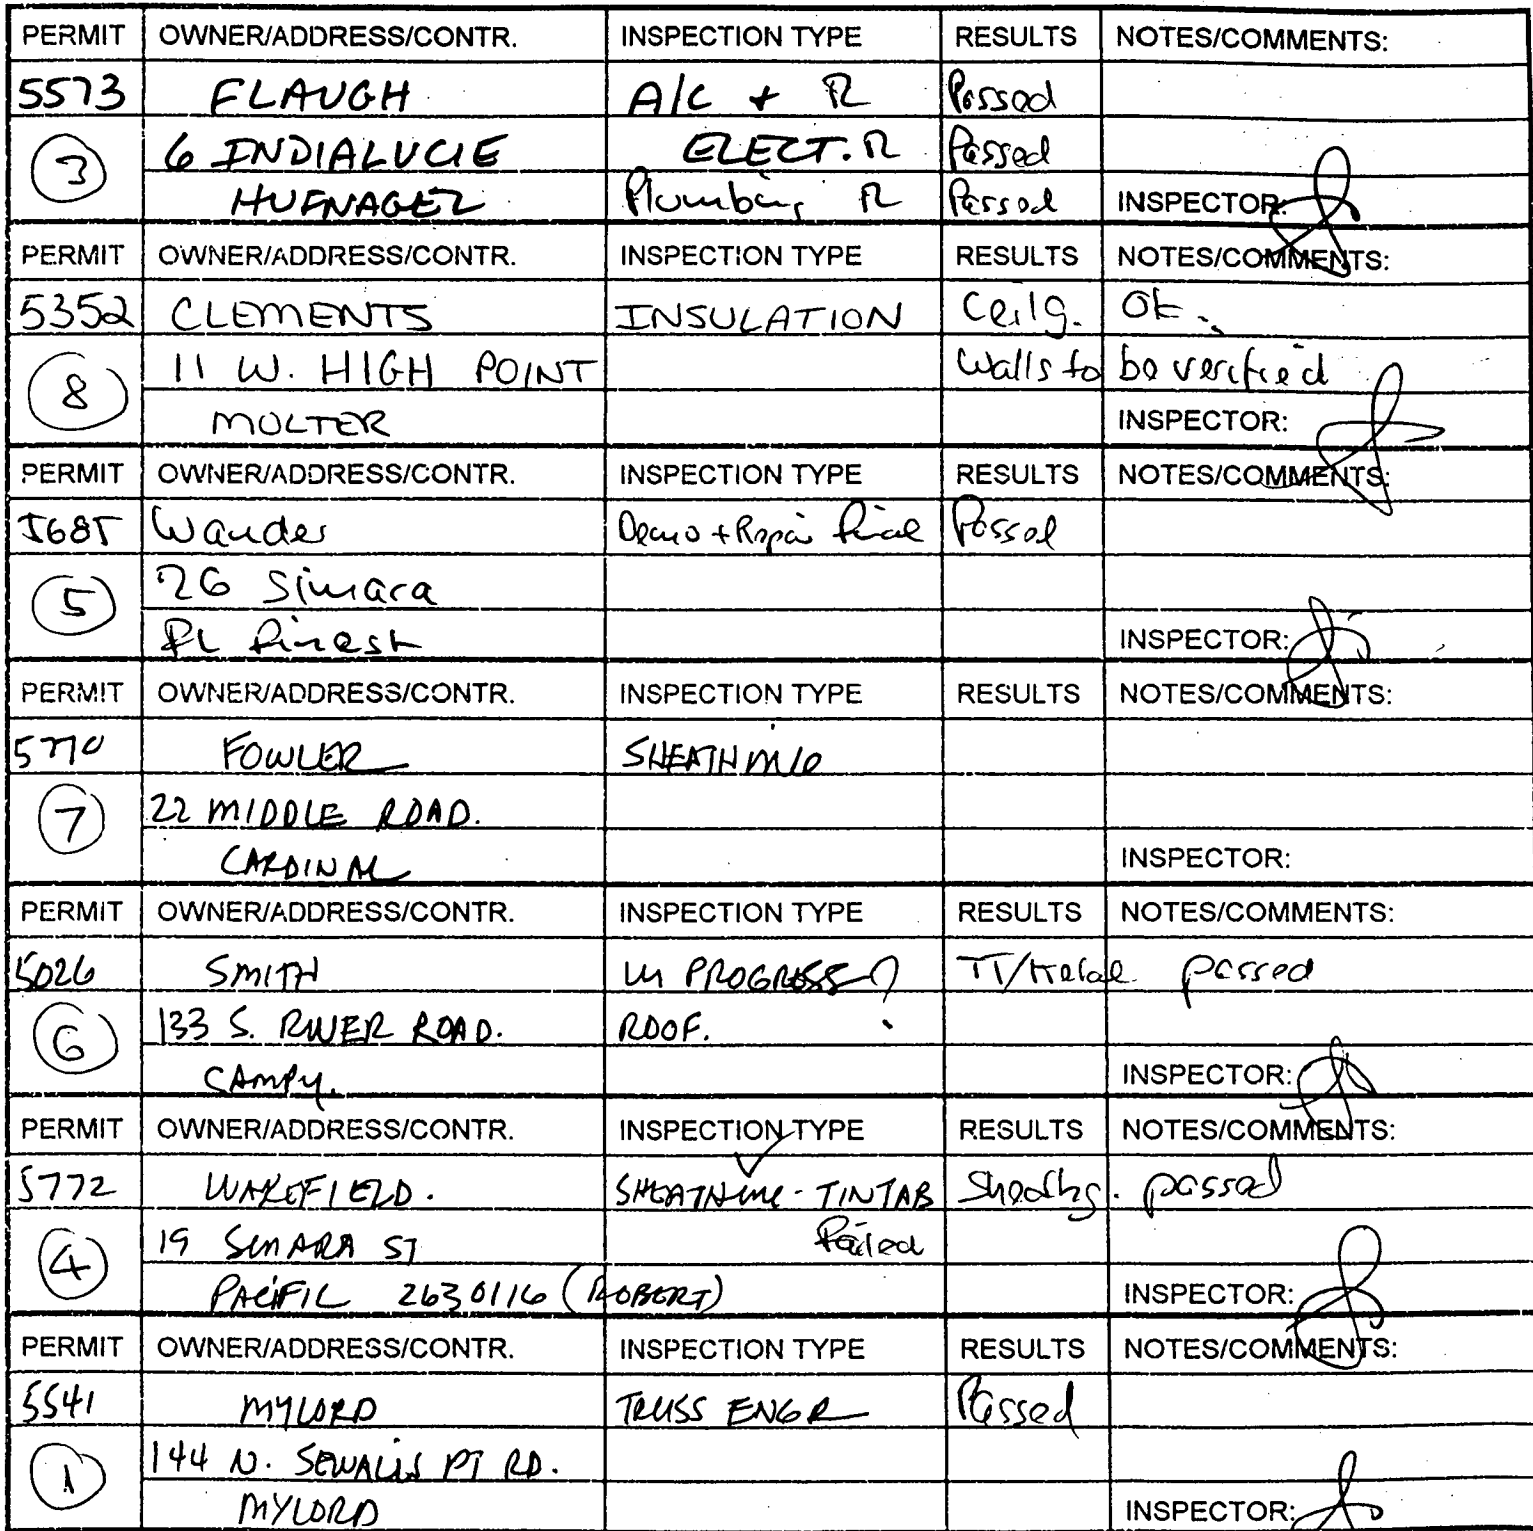 PERMIT OWNER/ADDRESS/CONTR. INSPECTION TYPE RESULTS NOTES/COMMENTS:
5573 FLAUGH A/C + R Passed
3 6 INDIALUCIE ELECT. R Passed
HUFNAGEL Plumbing R Passed INSPECTOR:
PERMIT OWNER/ADDRESS/CONTR. INSPECTION TYPE RESULTS NOTES/COMMENTS:
5352 CLEMENTS INSULATION Ceilg. Ok.
8 11 W. HIGH POINT Walls to be verified
MOLTER INSPECTOR:
PERMIT OWNER/ADDRESS/CONTR. INSPECTION TYPE RESULTS NOTES/COMMENTS:
5685 Wander Demo + Repair final Passed
5 26 Simara
FL finest INSPECTOR:
PERMIT OWNER/ADDRESS/CONTR. INSPECTION TYPE RESULTS NOTES/COMMENTS:
5770 FOWLER SHEATHING
7 22 MIDDLE ROAD.
CARDINAL INSPECTOR:
PERMIT OWNER/ADDRESS/CONTR. INSPECTION TYPE RESULTS NOTES/COMMENTS:
5026 SMITH IN PROGRESS? TT/metal passed
6 133 S. RIVER ROAD. ROOF.
CAMPY. INSPECTOR:
PERMIT OWNER/ADDRESS/CONTR. INSPECTION TYPE RESULTS NOTES/COMMENTS:
5772 WAKEFIELD. SHEATHING - TINTAB Sheathg. passed
4 19 SIMARA ST Failed
PACIFIC 2630116 (ROBERT) INSPECTOR:
PERMIT OWNER/ADDRESS/CONTR. INSPECTION TYPE RESULTS NOTES/COMMENTS:
5541 MYLORD TRUSS ENGR Passed
1 144 N. SEWALLS PT RD.
MYLORD INSPECTOR: